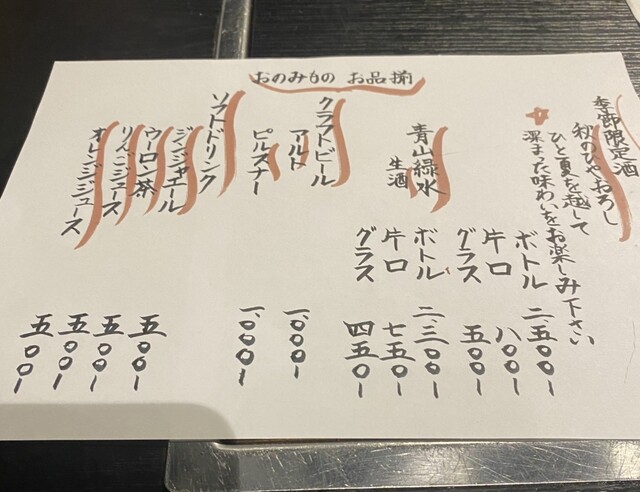 おのみもの お品揃
季節限定酒
秋のひやおろし
ひと夏を越して
深まった味わいをお楽しみ下さい
ボトル 二五〇〇-
片口 八〇〇-
グラス 五〇〇-
青山緑水
生酒
ボトル 二三〇〇-
片口 七五〇-
グラス 四五〇-
クラフトビール
アルト 一、〇〇〇-
ピルスナー 一、〇〇〇-
ソフトドリンク
ジンジャエール 五〇〇-
ウーロン茶 五〇〇-
りんごジュース 五〇〇-
オレンジジュース 五〇〇-